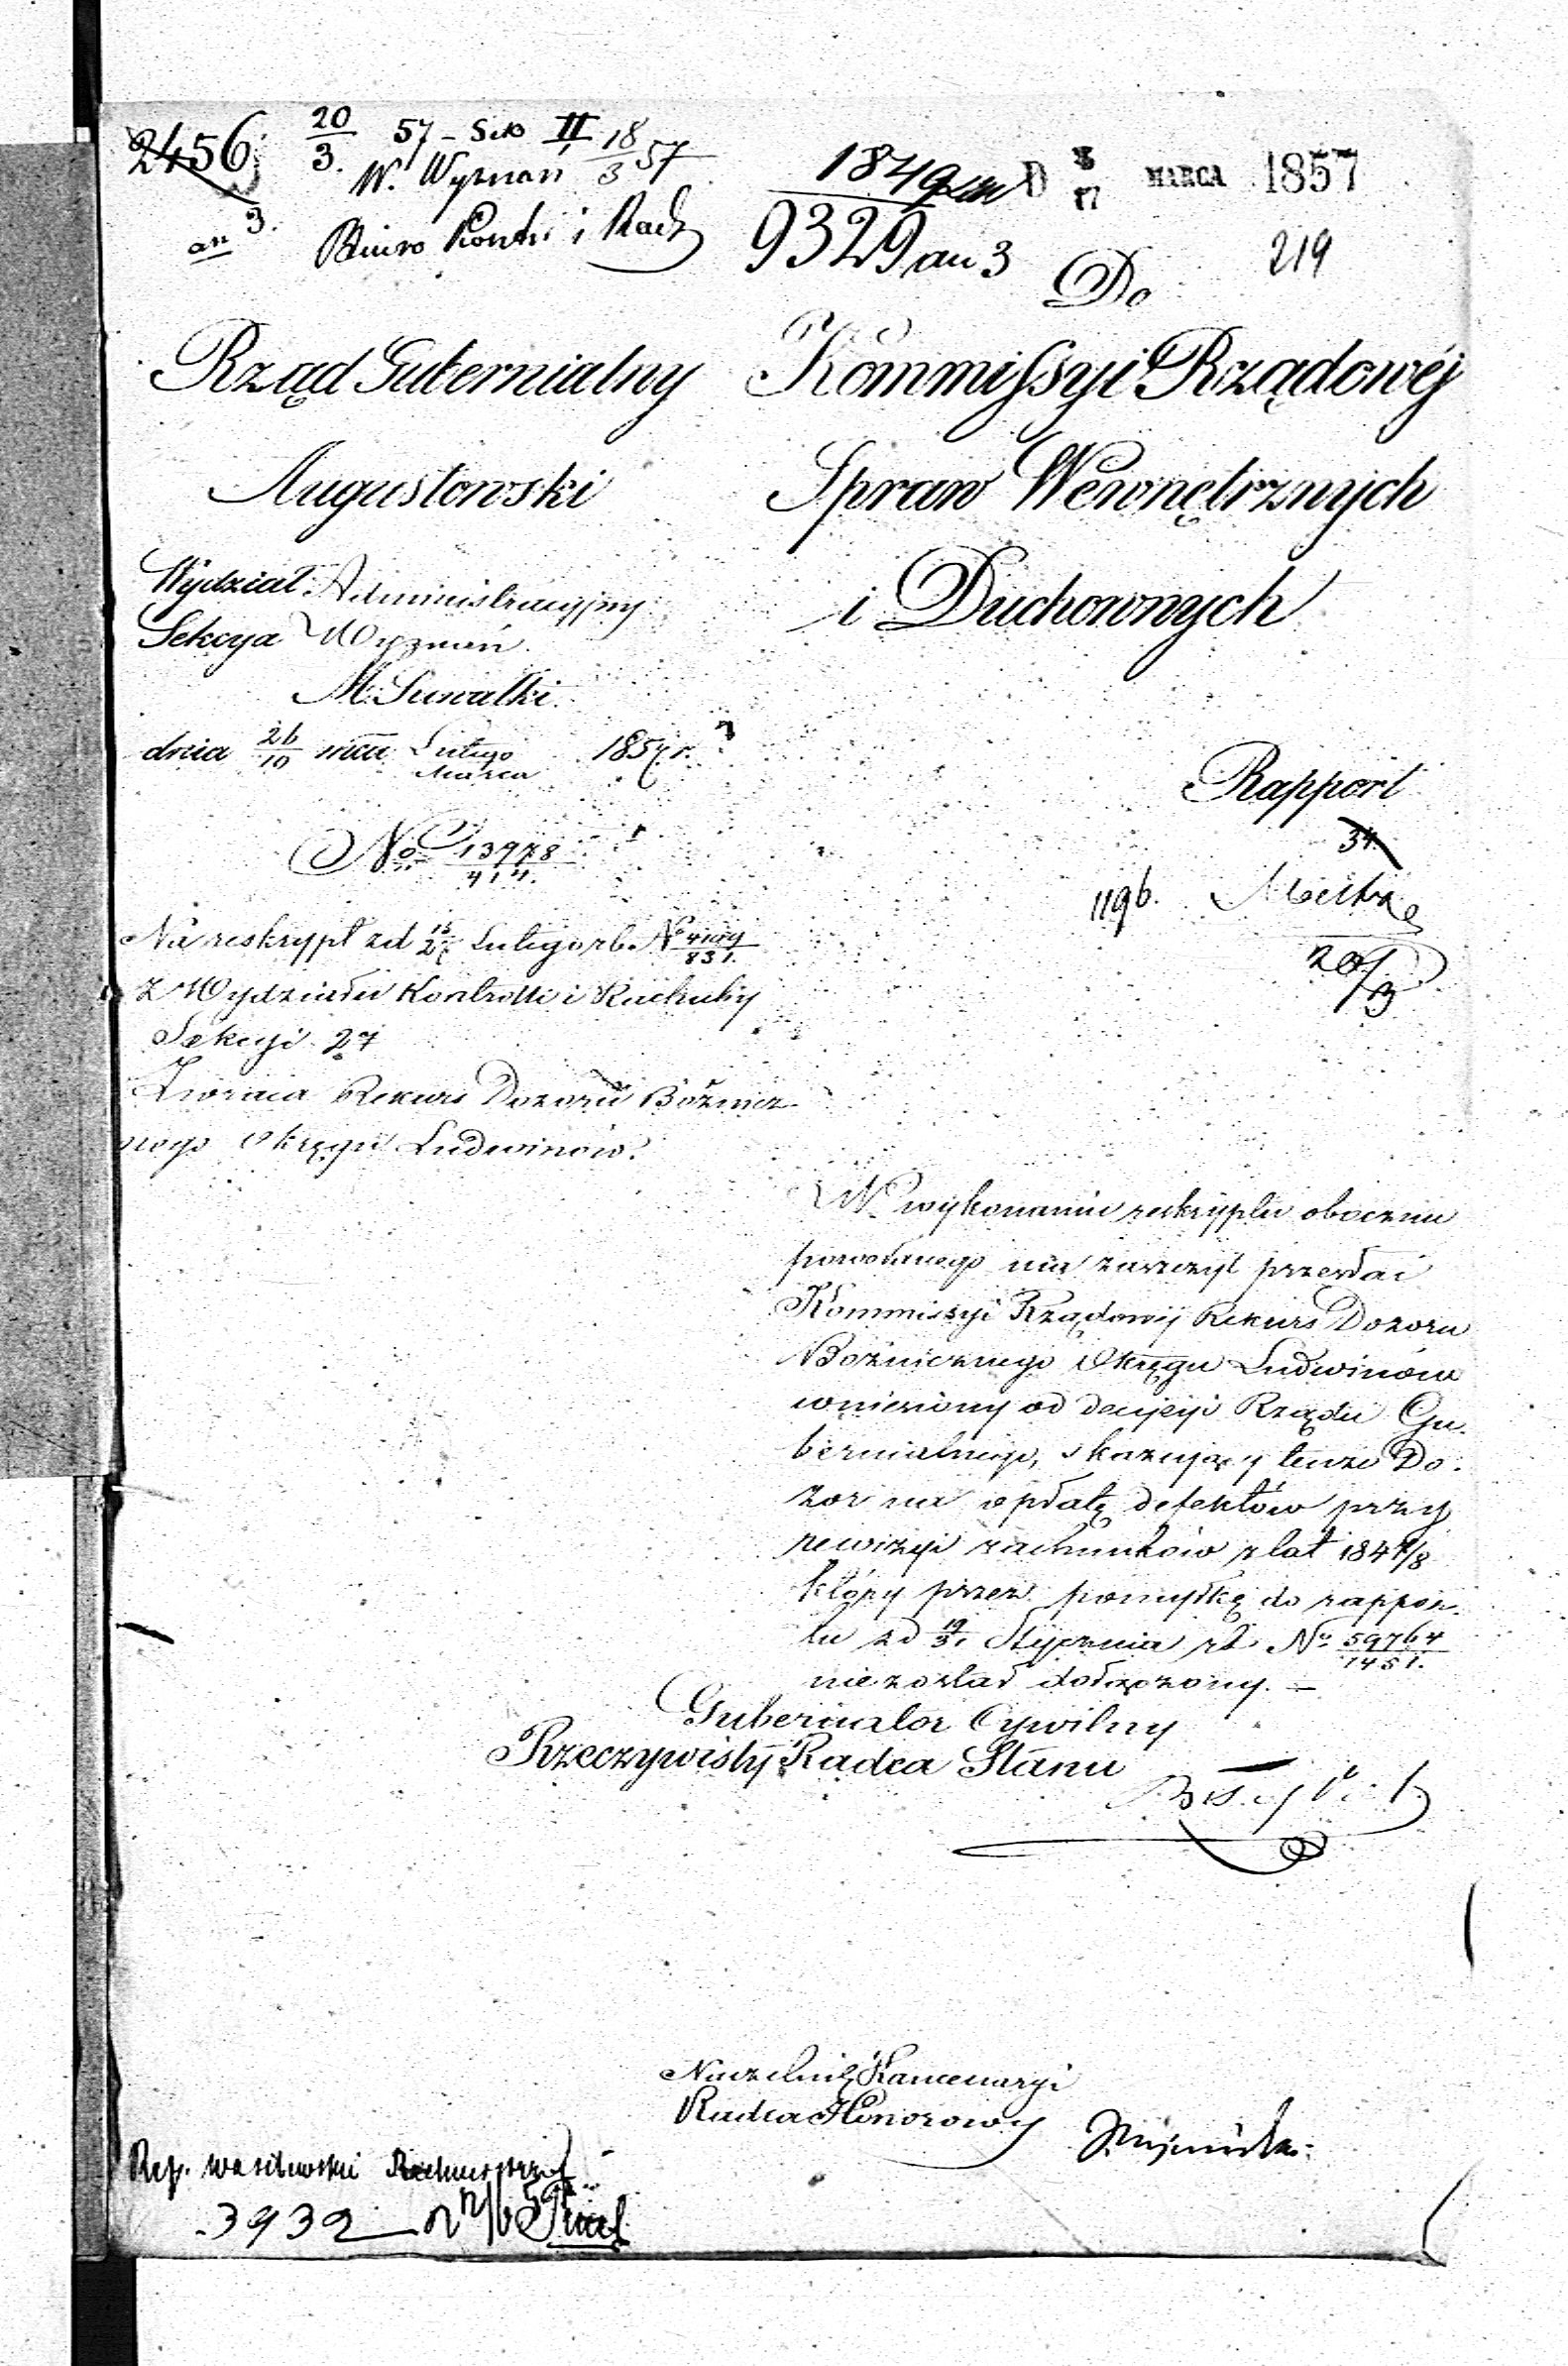 2456
20/3. 57 - Sek II 18/3 57
W. Wyznań
an 3.
Biuro Kontr. i Rach
1849
9329 an 3
D 5/17 MARCA 1857
219
Do
Rząd Gubernialny
Augustowski
Kommissyi Rządowéj
Spraw Wewnętrznych
i Duchownych
Wydział Administracyjny
Sekcya Wyznań
M. Suwałki
dnia 26/10 mca Lutego/Marca 1857 r.
No 13978/414.
Rapport
34
1196.
20/3
Na reskrypt zd 15/27 Lutego rb. No
831.
z Wydziału Kontrolli i Rachuby
Sekcyi 27
Zwraca Rekurs Dozoru Bóżnicz-
nego Okręgu Ludwinów.
W wykonaniu reskryptu obocznie
powołanego ma zaszczyt przesłać
Kommissyi Rządowéj Rekurs Dozoru
Bóżnicznego Okręgu Ludwinów
wniesiony od decyzyi Rządu Gu-
bernialnego, skazującéj tenże Do-
zor na opłatę defektów przy
rewizyi rachunków z lat 1847/8
który przez pomyłkę do rappor-
tu zd 19/31 Stycznia rb. No 59764/1451.
nie został dołączony. —
Gubernator Cywilny
Rzeczywisty Radca Stanu
Naczelnik Kancellaryi
Radca Honorowy
Ref. Wasilewski
3932